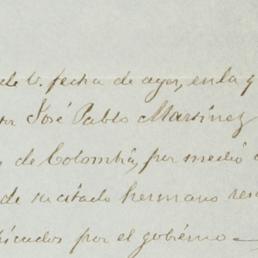 de V. fecha de ayer, en la q
or José Pablo Martinez
s de Colombia, por medio
de su citado hermano res
icados por el gobierno